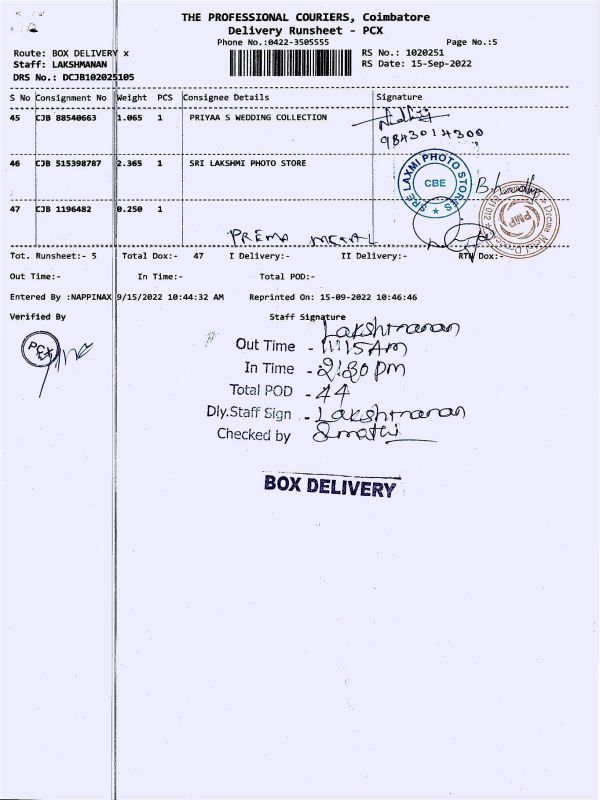 THE PROFESSIONAL COURIERS, Coimbatore
Delivery Runsheet - PCX
Phone No.:0422-3505555 Page No.:5
Route: BOX DELIVERY x RS No.: 1020251
Staff: LAKSHMANAN RS Date: 15-Sep-2022
DRS No.: DCJB102025105
S No Consignment No Weight PCS Consignee Details Signature
45 CJB 88540663 1.065 1 PRIYAA S WEDDING COLLECTION
9843014300
46 CJB 515398787 2.365 1 SRI LAKSHMI PHOTO STORE
SRE LAXMI PHOTO STORES
CBE
47 CJB 1196482 0.250 1
PMP
PREMA METAL
Tot. Runsheet:- 5 Total Dox:- 47 I Delivery:- II Delivery:- RTN Dox:-
Out Time:- In Time:- Total POD:-
Entered By :NAPPINAX 9/15/2022 10:44:32 AM Reprinted On: 15-09-2022 10:46:46
Verified By Staff Signature
PCX
Lakshmanan
Out Time - 11:15 AM
In Time - 2:30 pm
Total POD - 44
Dly.Staff Sign - Lakshmanan
Checked by
BOX DELIVERY